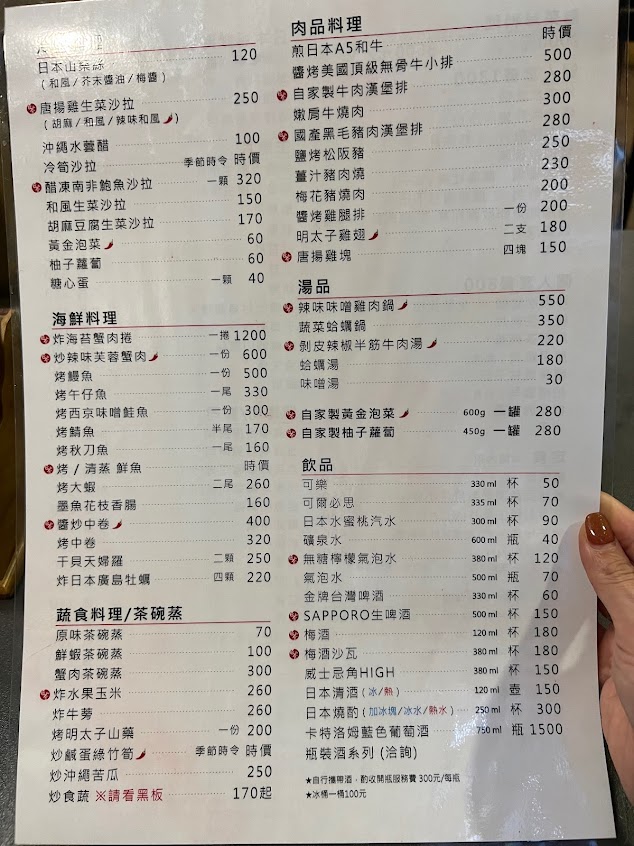 日本山藥絲 120
(和風/芥末醬油/梅醬)
唐揚雞生菜沙拉 250
(胡麻/和風/辣味和風)
沖繩水雲醋 100
冷筍沙拉 季節時令 時價
醋凍南非鮑魚沙拉 一顆 320
和風生菜沙拉 150
胡麻豆腐生菜沙拉 170
黃金泡菜 60
柚子蘿蔔 60
糖心蛋 一顆 40
海鮮料理
炸海苔蟹肉捲 一捲 1200
炒辣味芙蓉蟹肉 一份 600
烤鰻魚 一份 500
烤午仔魚 一尾 330
烤西京味噌鮭魚 一份 300
烤鯖魚 半尾 170
烤秋刀魚 一尾 160
烤/清蒸 鮮魚 時價
烤大蝦 二尾 260
墨魚花枝香腸 160
醬炒中卷 400
烤中卷 320
干貝天婦羅 二顆 250
炸日本廣島牡蠣 四顆 220
蔬食料理/茶碗蒸
原味茶碗蒸 70
鮮蝦茶碗蒸 100
蟹肉茶碗蒸 300
炸水果玉米 260
炸牛蒡 260
烤明太子山藥 一份 200
炒鹹蛋綠竹筍 季節時令 時價
炒沖繩苦瓜 250
炒食蔬 ※請看黑板 170起
肉品料理
煎日本A5和牛 時價
醬烤美國頂級無骨牛小排 500
自家製牛肉漢堡排 280
嫩肩牛燒肉 300
國產黑毛豬肉漢堡排 280
鹽烤松阪豬 250
薑汁豬肉燒 230
梅花豬燒肉 200
醬烤雞腿排 一份 200
明太子雞翅 二支 180
唐揚雞塊 四塊 150
湯品
辣味味噌雞肉鍋 550
蔬菜蛤蠣鍋 350
剝皮辣椒半筋牛肉湯 220
蛤蠣湯 180
味噌湯 30
自家製黃金泡菜 600g 一罐 280
自家製柚子蘿蔔 450g 一罐 280
飲品
可樂 330 ml 杯 50
可爾必思 335 ml 杯 70
日本水蜜桃汽水 300 ml 杯 90
礦泉水 600 ml 瓶 40
無糖檸檬氣泡水 380 ml 杯 120
氣泡水 500 ml 瓶 70
金牌台灣啤酒 330 ml 杯 60
SAPPORO生啤酒 500 ml 杯 150
梅酒 120 ml 杯 180
梅酒沙瓦 380 ml 杯 180
威士忌角HIGH 380 ml 杯 150
日本清酒(冰/熱) 120 ml 壺 150
日本燒酌(加冰塊/冰水/熱水) 250 ml 杯 300
卡特洛姆藍色葡萄酒 750 ml 瓶 1500
瓶裝酒系列(洽詢)
★自行攜帶酒，酌收開瓶服務費 300元/每瓶
★冰桶一桶100元